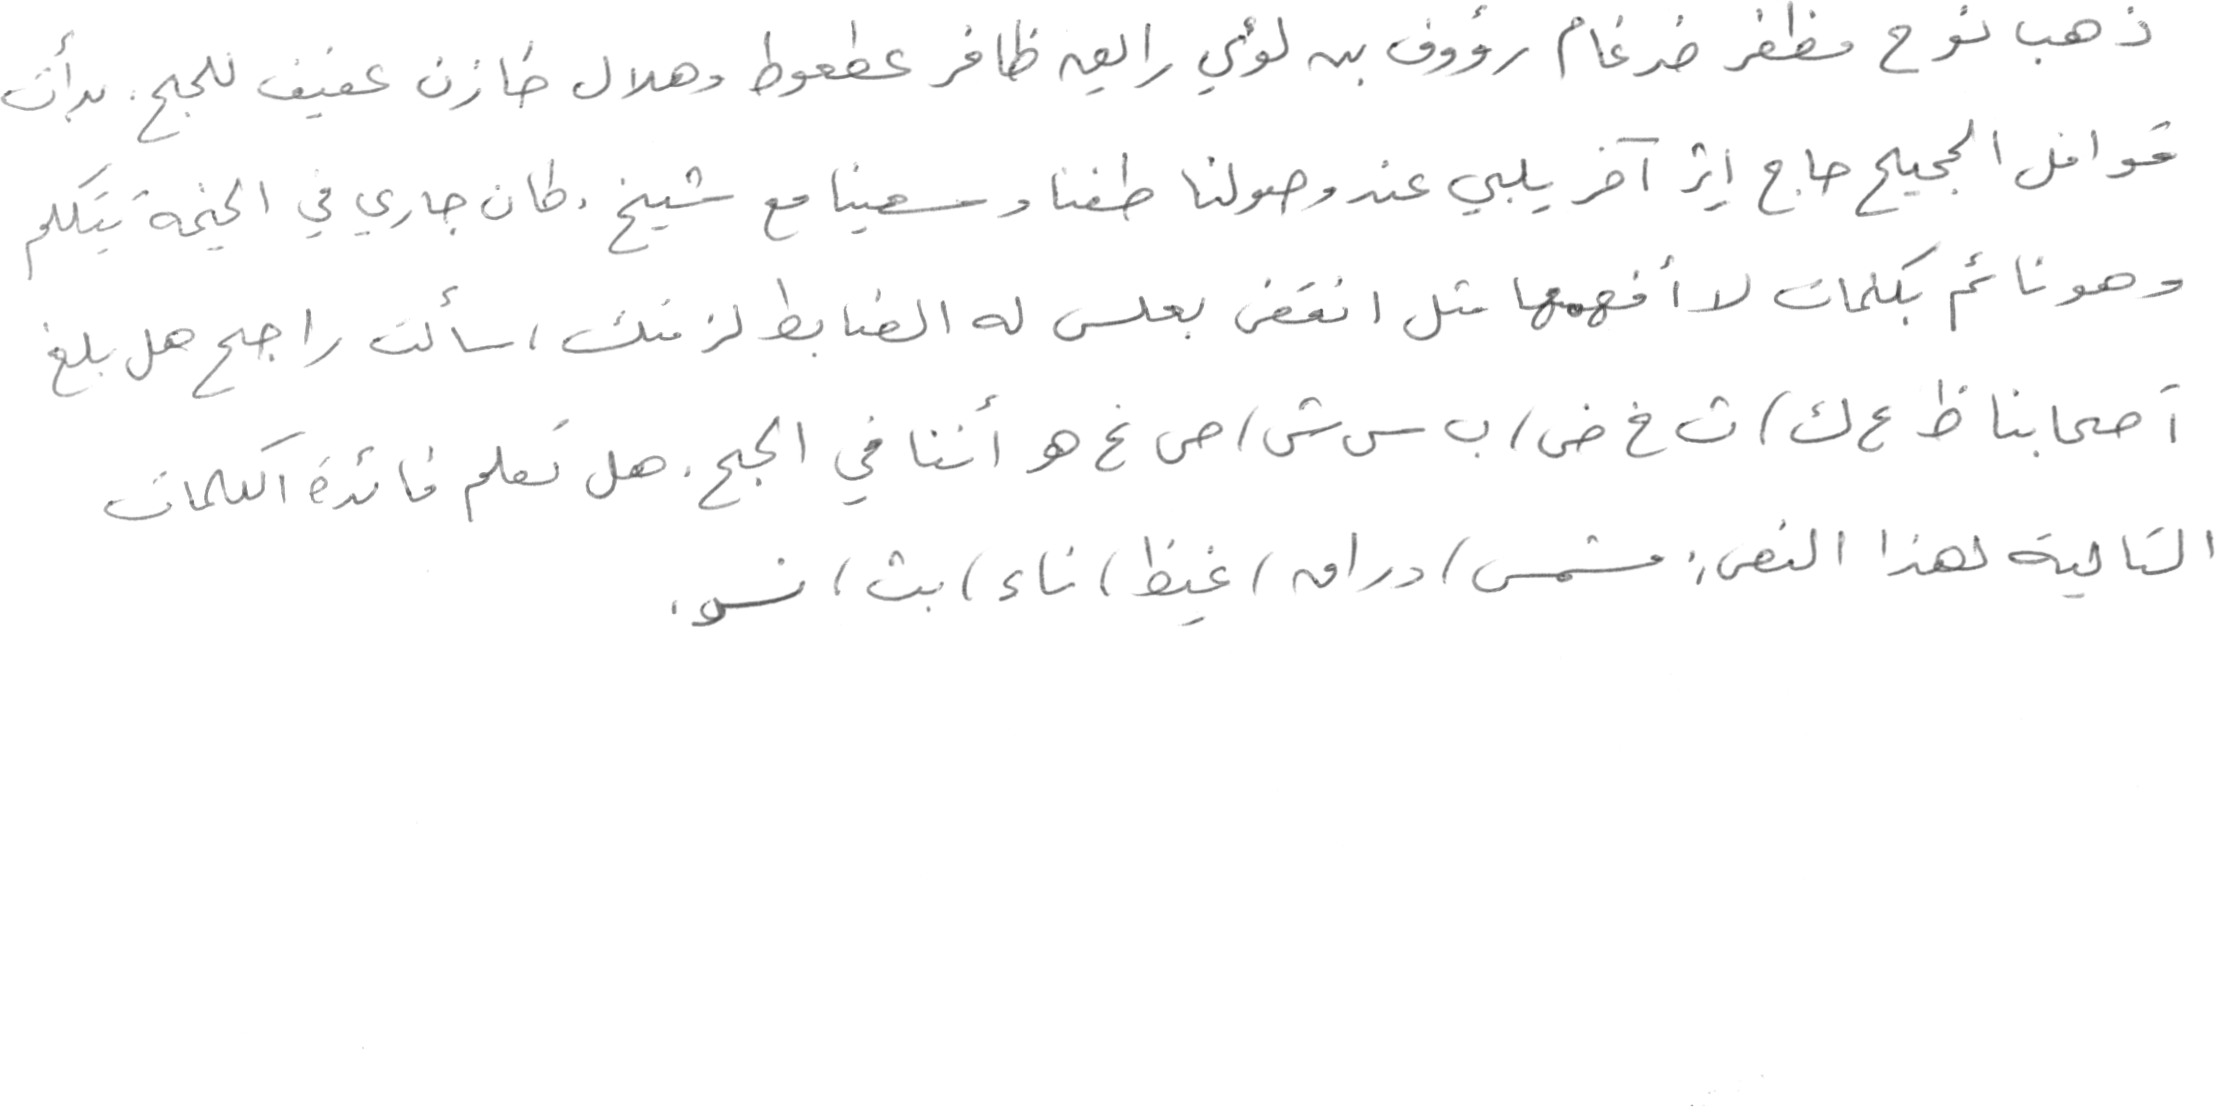 ذهب نوح مظفر ضرغام رؤوف بن لؤي رايق ظافر عطعوط وهلال خازن عفيف للحج. بدأت
قوافل الحجيج حاج إثر آخر يلبي عند وصولنا طفنا وسعينا مع شيخ. كان جاري في الخيمة يتكلم
وهو نائم بكلمات لا أفهمها مثل انقض بعلس له الضابط لزمتك، سألت راجح هل بلغ
أصحابنا ظ ع ك، ث خ ض، ب س ش، ص غ هو أننا في الحج. هل تعلم فائدة الكلمات
التالية لهذا النص: مشمس، دراق، غيظ، ناء، بث، نسو.